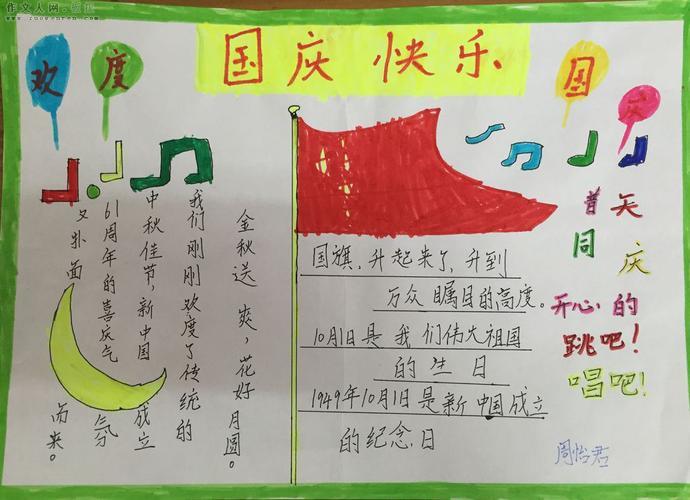 作文人网
www.zuowenren.com
欢度
国庆快乐
国庆
金秋送爽，花好月圆。
我们刚刚欢度了传统的
中秋佳节，新中国成立
61周年的喜庆气氛
又扑面而来。
国旗，升起来了，升到
万众瞩目的高度。
10月1日是我们伟大祖国
的生日
1949年10月1日是新中国成立
的纪念日
普天
同庆
开心的
跳吧！
唱吧！
周怡君